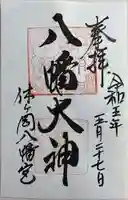 奉拝
令和五年
五月二十七日
八幡大神
休ヶ岡八幡宮